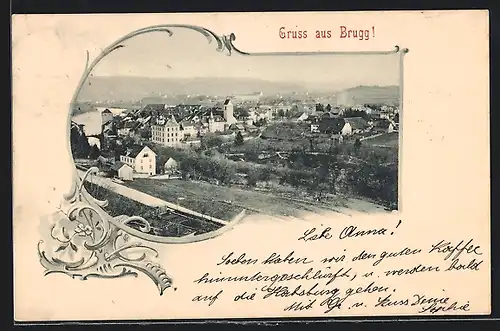 Gruss aus Brugg!
Lbe Anna!
Soeben haben wir den guten Kaffee
hinuntergeschlürft, u. werden bald
auf die Habsburg gehen.
Mit Gr. u. Kuss Deine
Sophie